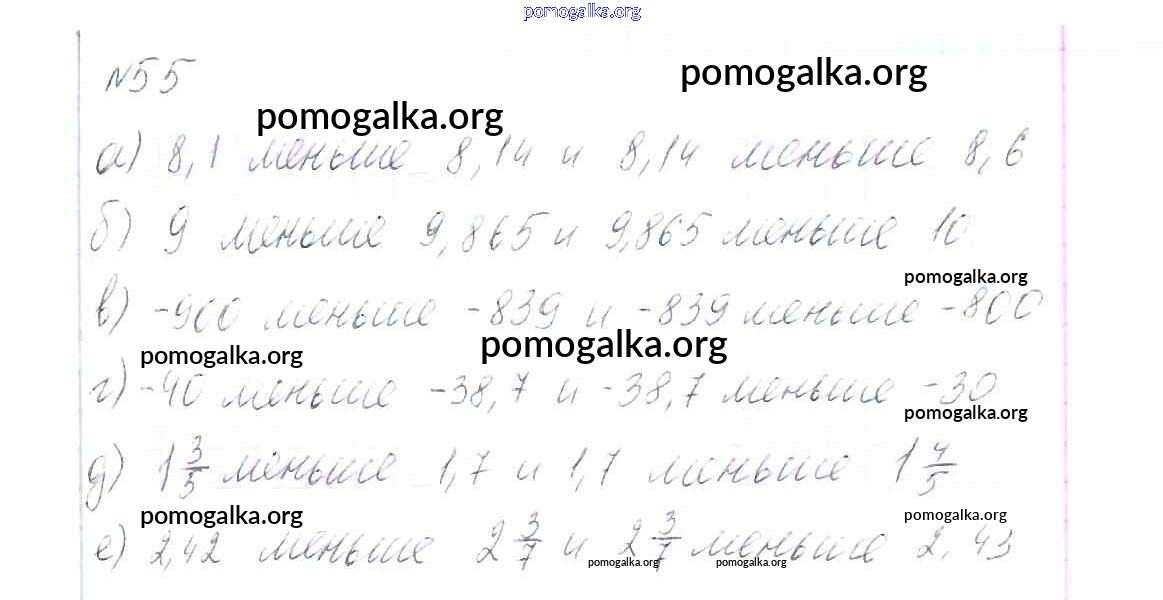 pomogalka.org
№55
pomogalka.org
pomogalka.org
а) 8,1 меньше 8,14 и 8,14 меньше 8,6
б) 9 меньше 9,865 и 9,865 меньше 10
pomogalka.org
в) -900 меньше -839 и -839 меньше -800
pomogalka.org
pomogalka.org
г) -40 меньше -38,7 и -38,7 меньше -30
pomogalka.org
д) 1 3/5 меньше 1,7 и 1,7 меньше 1 4/5
pomogalka.org
pomogalka.org
е) 2,42 меньше 2 3/7 и 2 3/7 меньше 2,43
pomogalka.org
pomogalka.org